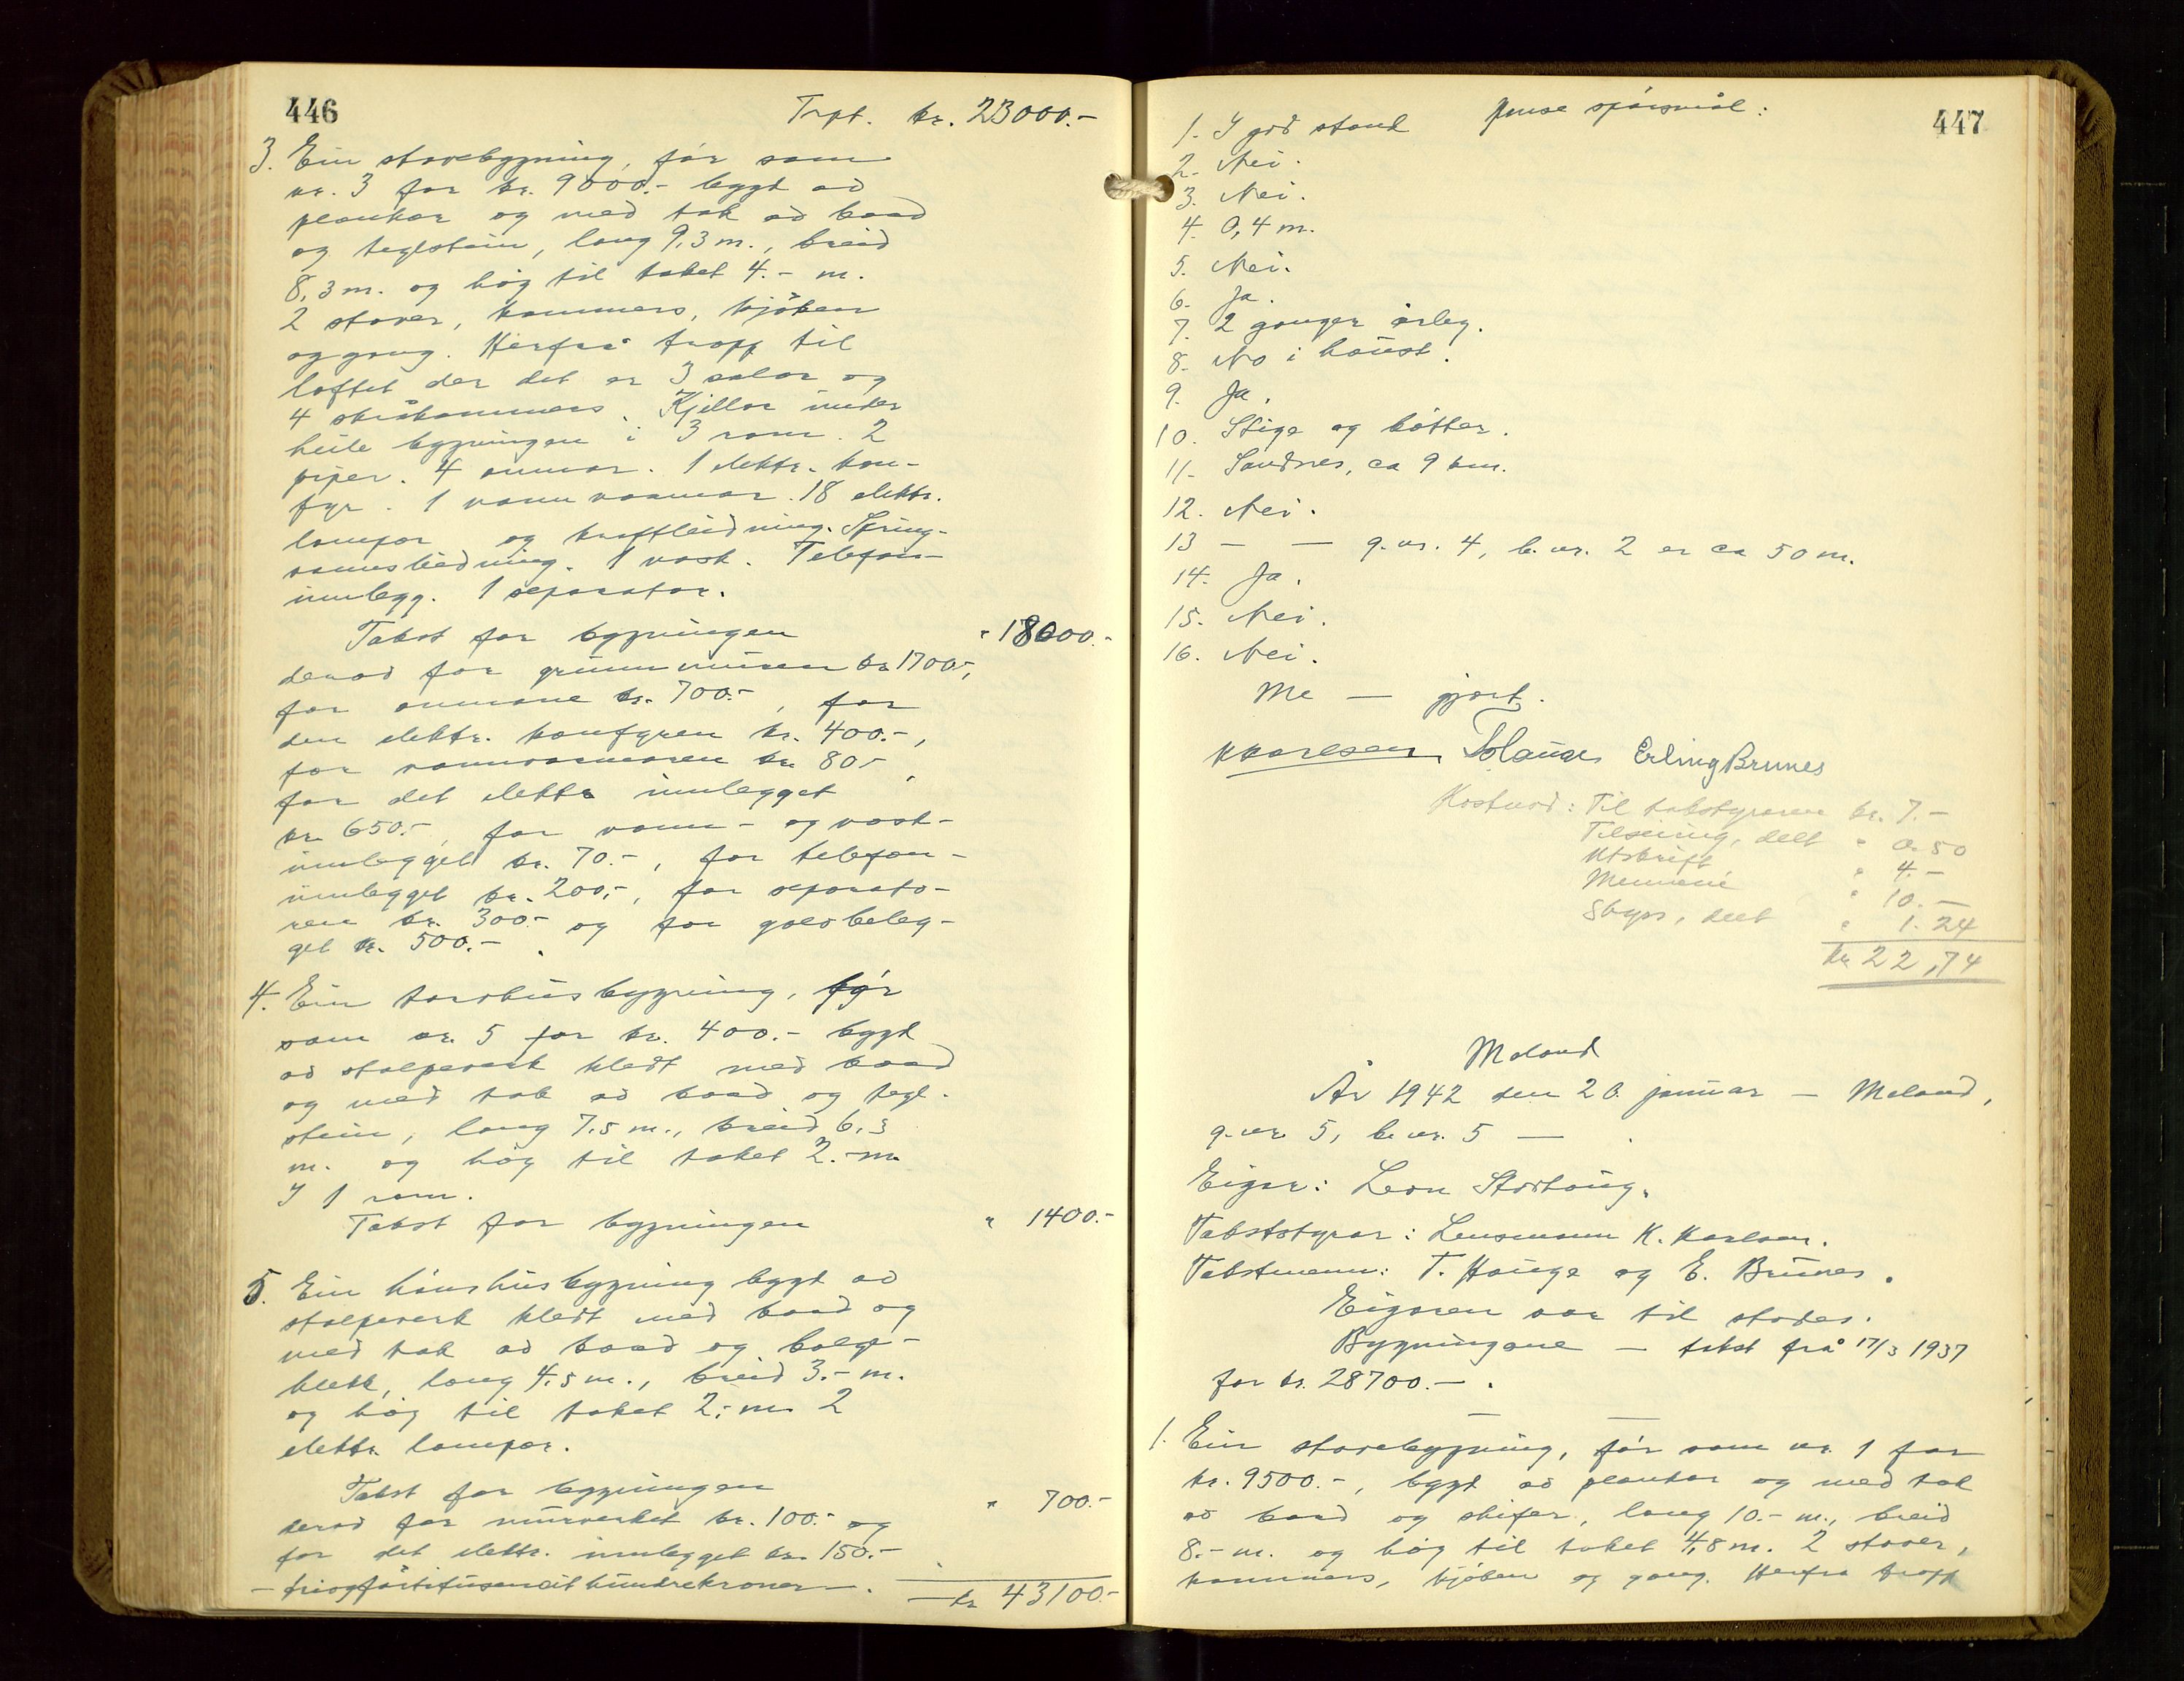 446
Trpt. kr. 23000.-
3. Ein stovebygning, før som
nr. 3 for kr. 9000.- bygt av
plankar og med tak av bord
og teglstein, lang 9,3 m., breid
8,3 m. og høg til taket 4.- m.
2 stover, kammers, kjøken
og gang. Herfrå tropp til
loftet der det er 3 salar og
4 skråkammers. Kjellar under
heile bygningen i 3 rom. 2
piper. 4 omnar. 1 elektr. kom-
fyr. 1 vannvarmar. 18 elektr.
lampor og kraftleidning. Spring-
vannsleidning. 1 vask. Telefon-
innlegg. 1 separator.
Takst for bygningen " 18000.-
derav for grunnmuren kr. 1700.-,
for omnane kr. 700.-, for
den elektr. komfyren kr. 400.-,
for vannvarmaren kr. 80.-,
for det elektr. innlegget
kr. 650.-, for vann- og vask-
innlegget kr. 70.-, for telefon-
innlegget kr. 200.-, for separato-
ren kr. 300.- og for golvbeleg-
get kr. 500.-.
4. Ein torvhusbygning, før
som nr. 5 for kr. 400.- bygt
av stolpeverk kledt med bord
og med tak av bord og tegl-
stein, lang 7.5 m., breid 6.3
m. og høg til taket 2.- m.
I 1 rom.
Takst for bygningen " 1400.-
5. Ein hønshusbygning bygt av
stolpeverk kledt med bord og
med tak av bord og bølge-
blekk, lang 4.5 m., breid 3.- m.
og høg til taket 2.- m. 2
elektr. lampor.
Takst for bygningen " 700.-
derav for murverket kr. 100.- og
for det elektr. innlegget kr. 150.-.
- triogførtituseneithundrekroner -. - kr. 43100.-
447
Ymse spørsmål:
1. I god stand
2. Nei.
3. Nei.
4. 0,4 m.
5. Nei.
6. Ja.
7. 2 gonger årleg.
8. No i haust.
9. Ja.
10. Stige og bøtter.
11. Sandnes, ca 9 km.
12. Nei.
13 — — g.nr. 4, b.nr. 2 er ca 50 m.
14. Ja.
15. Nei.
16. Nei.
Me — gjort.
K Karlsen T Hauge Erling Brunes
Kostnad: Til takststyraren kr. 7.-
Tilseiing, delt " 0.50
Utskrift " 4.-
Mennene " 10.-
Skyss, delt " 1.24
kr. 22,74
Meland
År 1942 den 20. januar — Meland,
g.nr. 5, b.nr. 5 — .
Eigar: Leon Storhaug.
Takststyrar: Lensmann K. Karlsen.
Takstmenn: T. Hauge og E. Brunes.
Eigaren var til stades.
Bygningane — takst frå 17/3 1937
for kr. 28700.-.
1. Ein stovebygning, før som nr. 1 for
kr. 9500.-, bygt av plankar og med tak
av bord og skifer, lang 10.- m., breid
8.- m. og høg til taket 4,8 m. 2 stover,
kammers, kjøken og gang. Herfra tropp